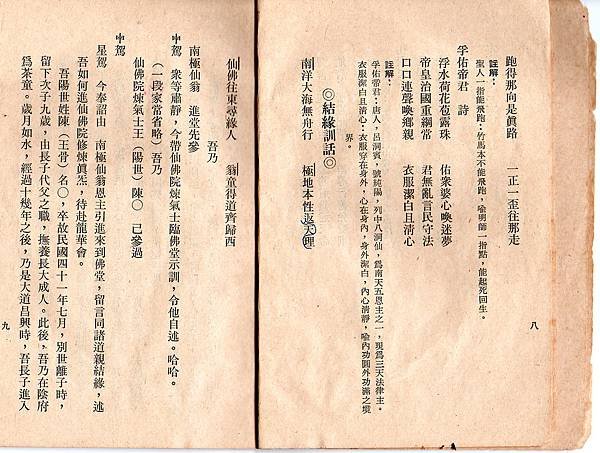 跑得那向是眞路　一正一歪往那走
註解：
聖人一指能飛跑：竹馬本不能飛跑，喻明師一指點，能起死回生。
孚佑帝君　詩
浮水荷花苞露珠　佑衆婆心喚迷夢
帝皇治國重綱常　君無亂言民守法
口口連聲喚鄉親　衣服潔白且淸心
註解：
孚佑帝君：唐人，呂洞賓，號純陽，列中八洞仙，爲南天五恩主之一，現爲三天法律主。
衣服潔白且淸心：衣服穿在身外，心在身內，身外潔白，內心淸靜，喻內功圓外功滿之境
界。
◎結緣訓話◎
南洋大海無舟行　極地本性返天理
八
仙佛往東尋緣人　翁童得道齊歸西
吾乃
南極仙翁　進堂先參
中駕　衆等肅靜，今帶仙佛院煉氣士臨佛堂示訓，令他自述。哈哈。
（一段家常省略）吾乃
仙佛院煉氣士王（陽世）陳○　已參過
中駕
星駕　今奉詔由　南極仙翁恩主引進來到佛堂，留言同諸道親結緣，述
吾如何進仙佛院修煉眞炁，待赴龍華會。
吾陽世姓陳（王骨）名○，卒故民國四十一年七月，別世離子時，
留下次子九歲，由長子代父之職，撫養長大成人。此後，吾乃在陰府
爲茶童。歲月如水，經過十幾年之後，乃是大道昌興時，吾長子進入
九